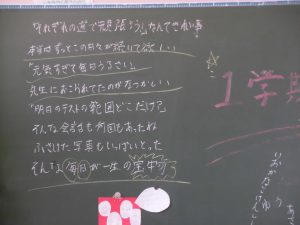 「それぞれの道で頑張ろう」なんてきれい事
本当はずっとこの日々が続いて欲しい
「元気すぎて毎日うるさい」
先生におこられてたのがなつかしい
「明日のテストの範囲どこだけ?」
そんな会話も何回もあったね
ふざけた写真もいっぱいとった
そんな毎日が一生の宝物
1学期